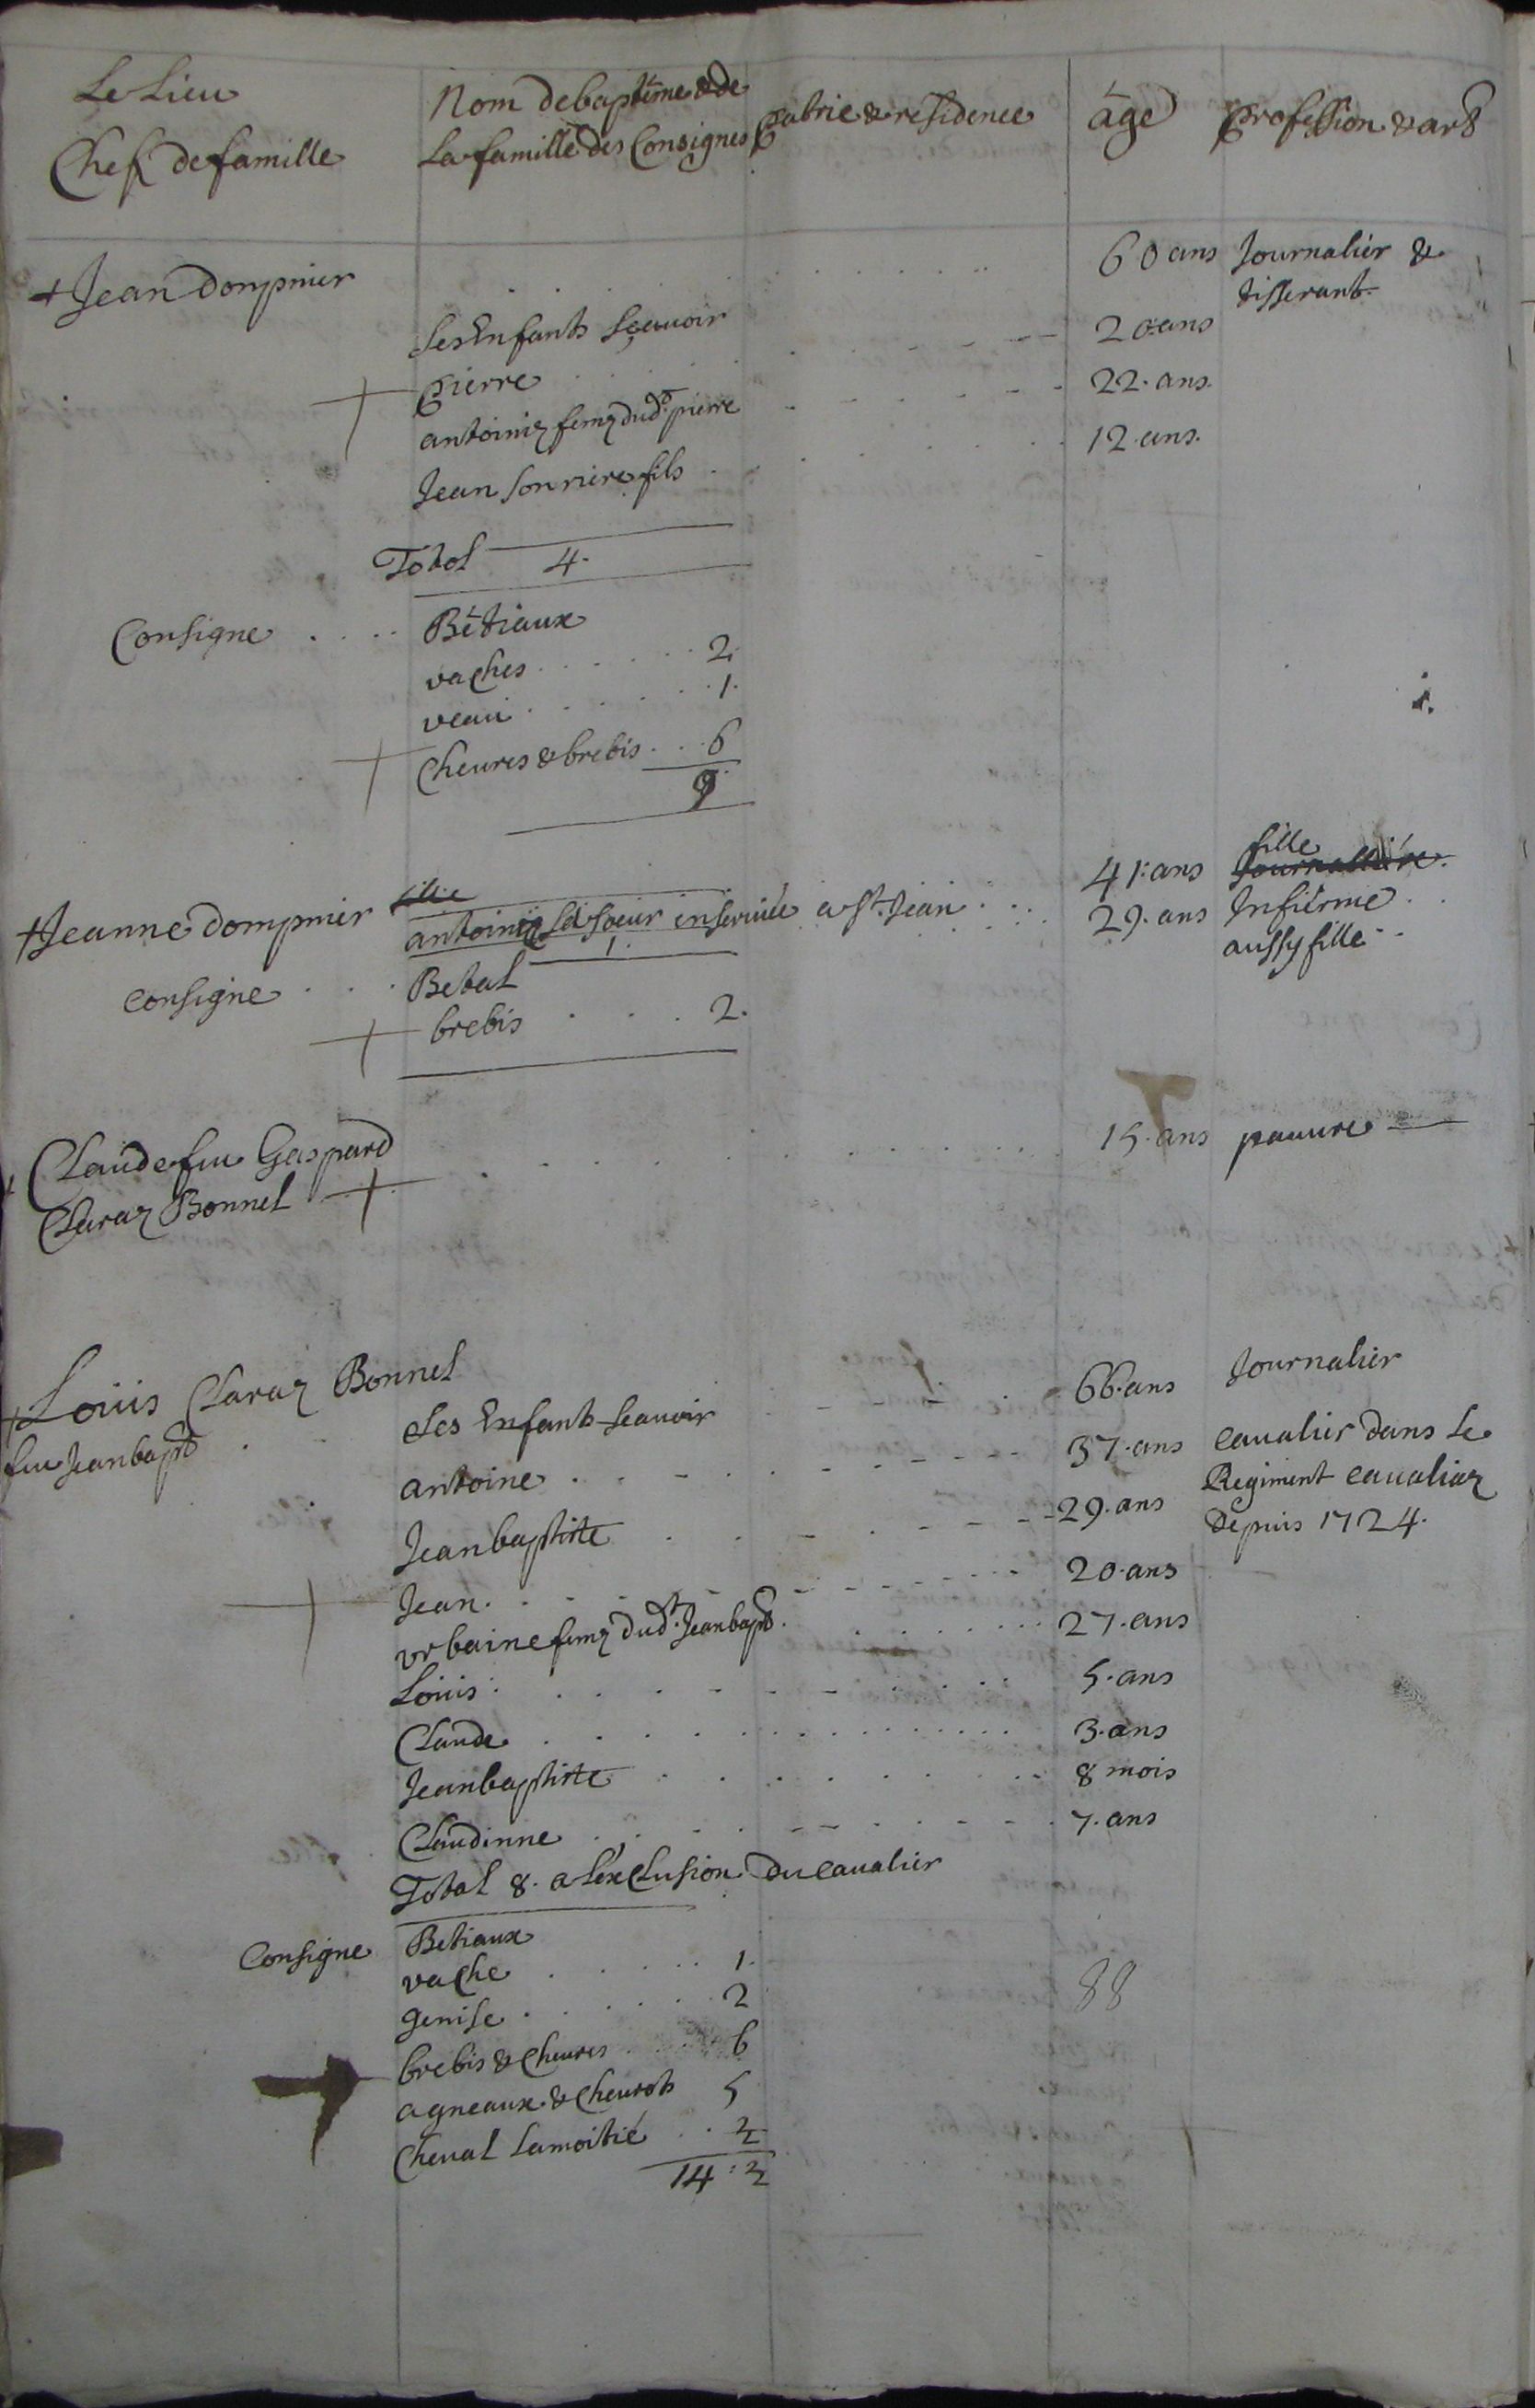 Le Lieu
Chef de famille
Nom de baptême & de
La famille des Consignes
patrie & residence
âge
profession & art
+ Jean Dompnier
60 ans Journalier &
tisserant.
Ses Enfants Sçavoir
Pierre 20 ans
antoinie feme dud.t pierre 22. ans.
Jean Son fils 12. ans.
Total 4.
Consigne . . . . Bêtiaux
vaches . . . . . . 2.
veau . . . . . . 1.
Cheures & brebis . . . 6
9.
+ Jeanne Dompnier 41. ans fille
antoinie sa soeur inservice a St. Jean . . . 29. ans Infirme . .
aussy fille
1.
consigne . . . Betal
brebis . . . 2.
Claude feu Gaspard
15. ans pauure
Claraz Bonnel
+ Louis Claraz Bonnel 66. ans Journalier
feu Jean bapt
Ses Enfants Scauoir
antoine 37. ans caualier dans Le
Regiment caualiaz
Depuis 1724.
Jean baptiste 29. ans
Jean 20. ans
urbaine feme dud.t Jean bapt. 27. ans
Louis 5. ans
Claude 3. ans
Jean baptiste 8 mois
Claudinne 7. ans
Total 8. a L'exClusion du caualier
Consigne Betiaux
vache . . . . . 1.
genise . . . . . 2
88
brebis & cheures . . . 6
agneaux & Cheurots 5
Cheual La moitié . . ½
14 : ½